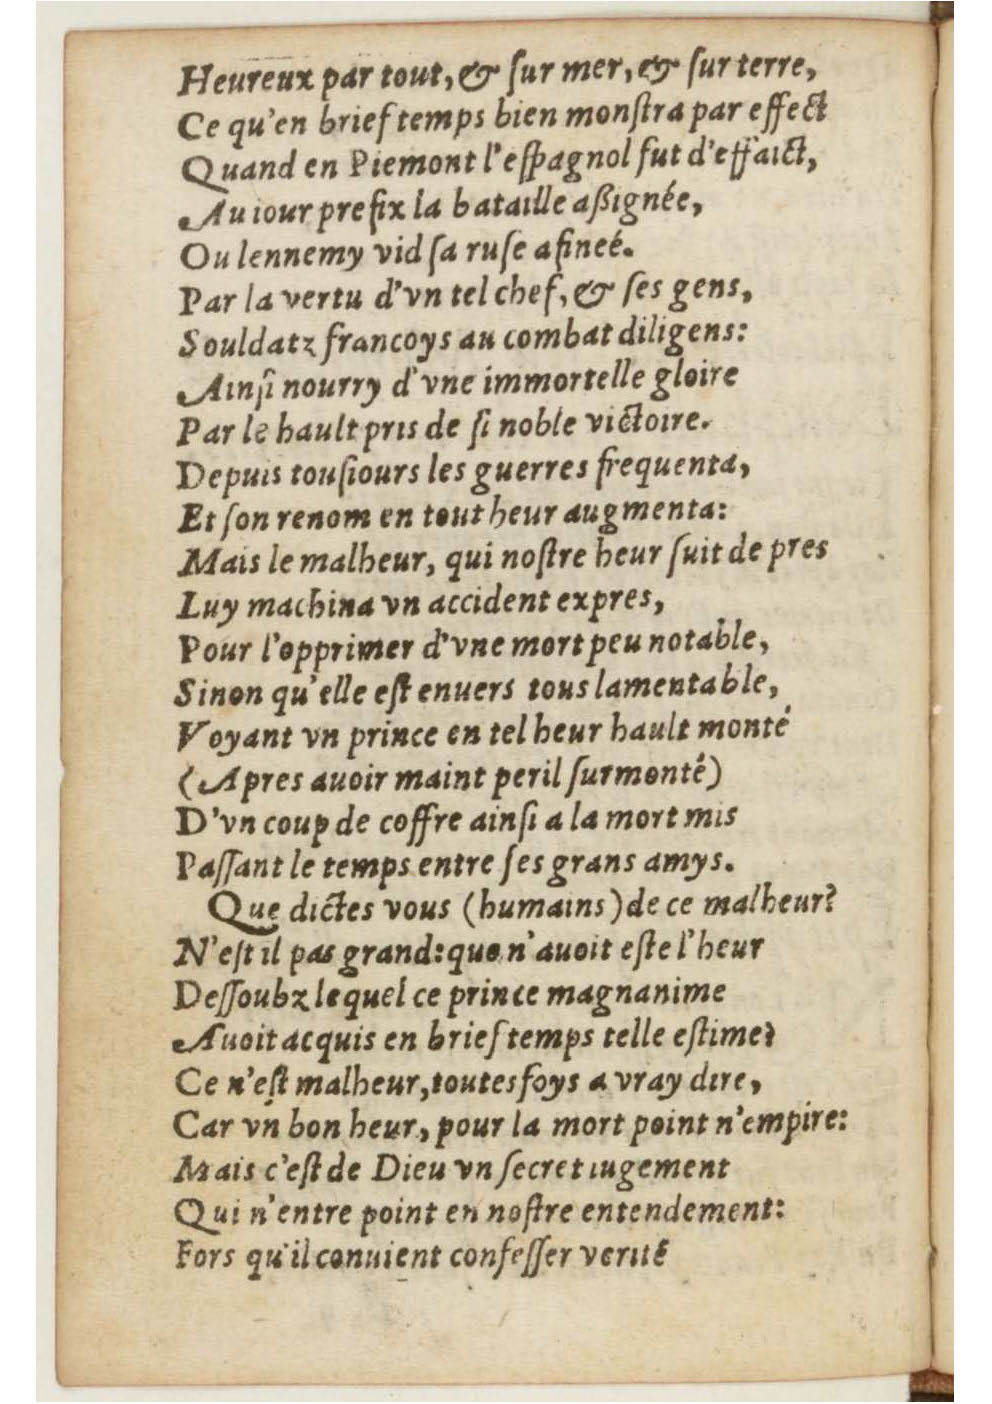 Heureux par tout, & ſur mer, & ſur terre,
Ce qu'en brief temps bien monſtra par effect
Quand en Piemont l'eſpagnol fut d'effaict,
Au iour prefix la bataille aßignée,
Ou lennemy vid ſa ruſe afineé.
Par la vertu d'vn tel chef, & ſes gens,
Souldatz francoys au combat diligens:
Ainſi nourry d'vne immortelle gloire
Par le hault pris de ſi noble victoire.
Depuis touſiours les guerres frequenta,
Et ſon renom en tout heur augmenta:
Mais le malheur, qui noſtre heur ſuit de pres
Luy machina vn accident expres,
Pour l'opprimer d'vne mort peu notable,
Sinon qu'elle eſt enuers tous lamentable,
Voyant vn prince en tel heur hault monté
(Apres auoir maint peril ſurmonté)
D'vn coup de coffre ainſi a la mort mis
Paſſant le temps entre ſes grans amys.
Que dictes vous (humains) de ce malheur?
N'eſt il pas grand: que n'auoit eſte l'heur
Deſſoubz lequel ce prince magnanime
Auoit acquis en brief temps telle eſtime?
Ce n'eſt malheur, toutesfoys a vray dire,
Car vn bon heur, pour la mort point n'empire:
Mais c'eſt de Dieu vn ſecret iugement
Qui n'entre point en noſtre entendement:
Fors qu'il conuient confeſſer verité